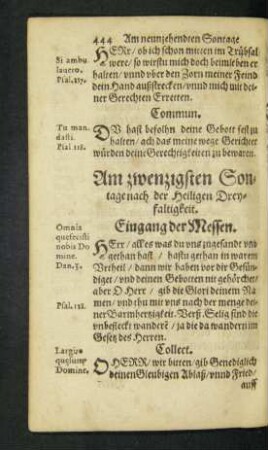 444 Am neunzehendten Sontage
Si ambu
lauero.
Psal.137.
HERr / ob ich schon mitten im Trübsal
were / so wirstu mich doch beim leben er
halten / vnnd vber den Zorn meiner Feind
dein Hand außstrecken / vnnd mich mit dei-
ner Gerechten Erretten.
Commun.
Tu man
dasti.
Psal 118.
DV hast befolhn deine Gebott fest zu
halten / ach das meine wege Gerichtet
würden deine Gerechtigkeiten zu bewaren.
Am zwenzigsten Son-
tage nach der Heiligen Drey-
faltigkeit.
Eingang der Messen.
Omnia
quæ fecisti
nobis Do
mine.
Dan.3.
HErr / alles was du vns zugesandt vnd
gethan hast / hastu gethan in waren
Vrtheil / dann wir haben vor dir Gesün-
diget / vnd deinen Gebotten nit gehörchet /
aber O Herr / gib die Glori deinem Na-
men / vnd thu mit vns nach der menge dei-
Psal.118.
ner Barmhertzigkeit. Verß. Selig sind die
vnbefleckt wandern / ja die da wandern im
Gesetz des Herren.
Collect.
Largire
quesumus
Domine.
O HERR / wir bitten / gib Genediglich
deinen Gleubigen Ablaß / vnnd Fried /
auff